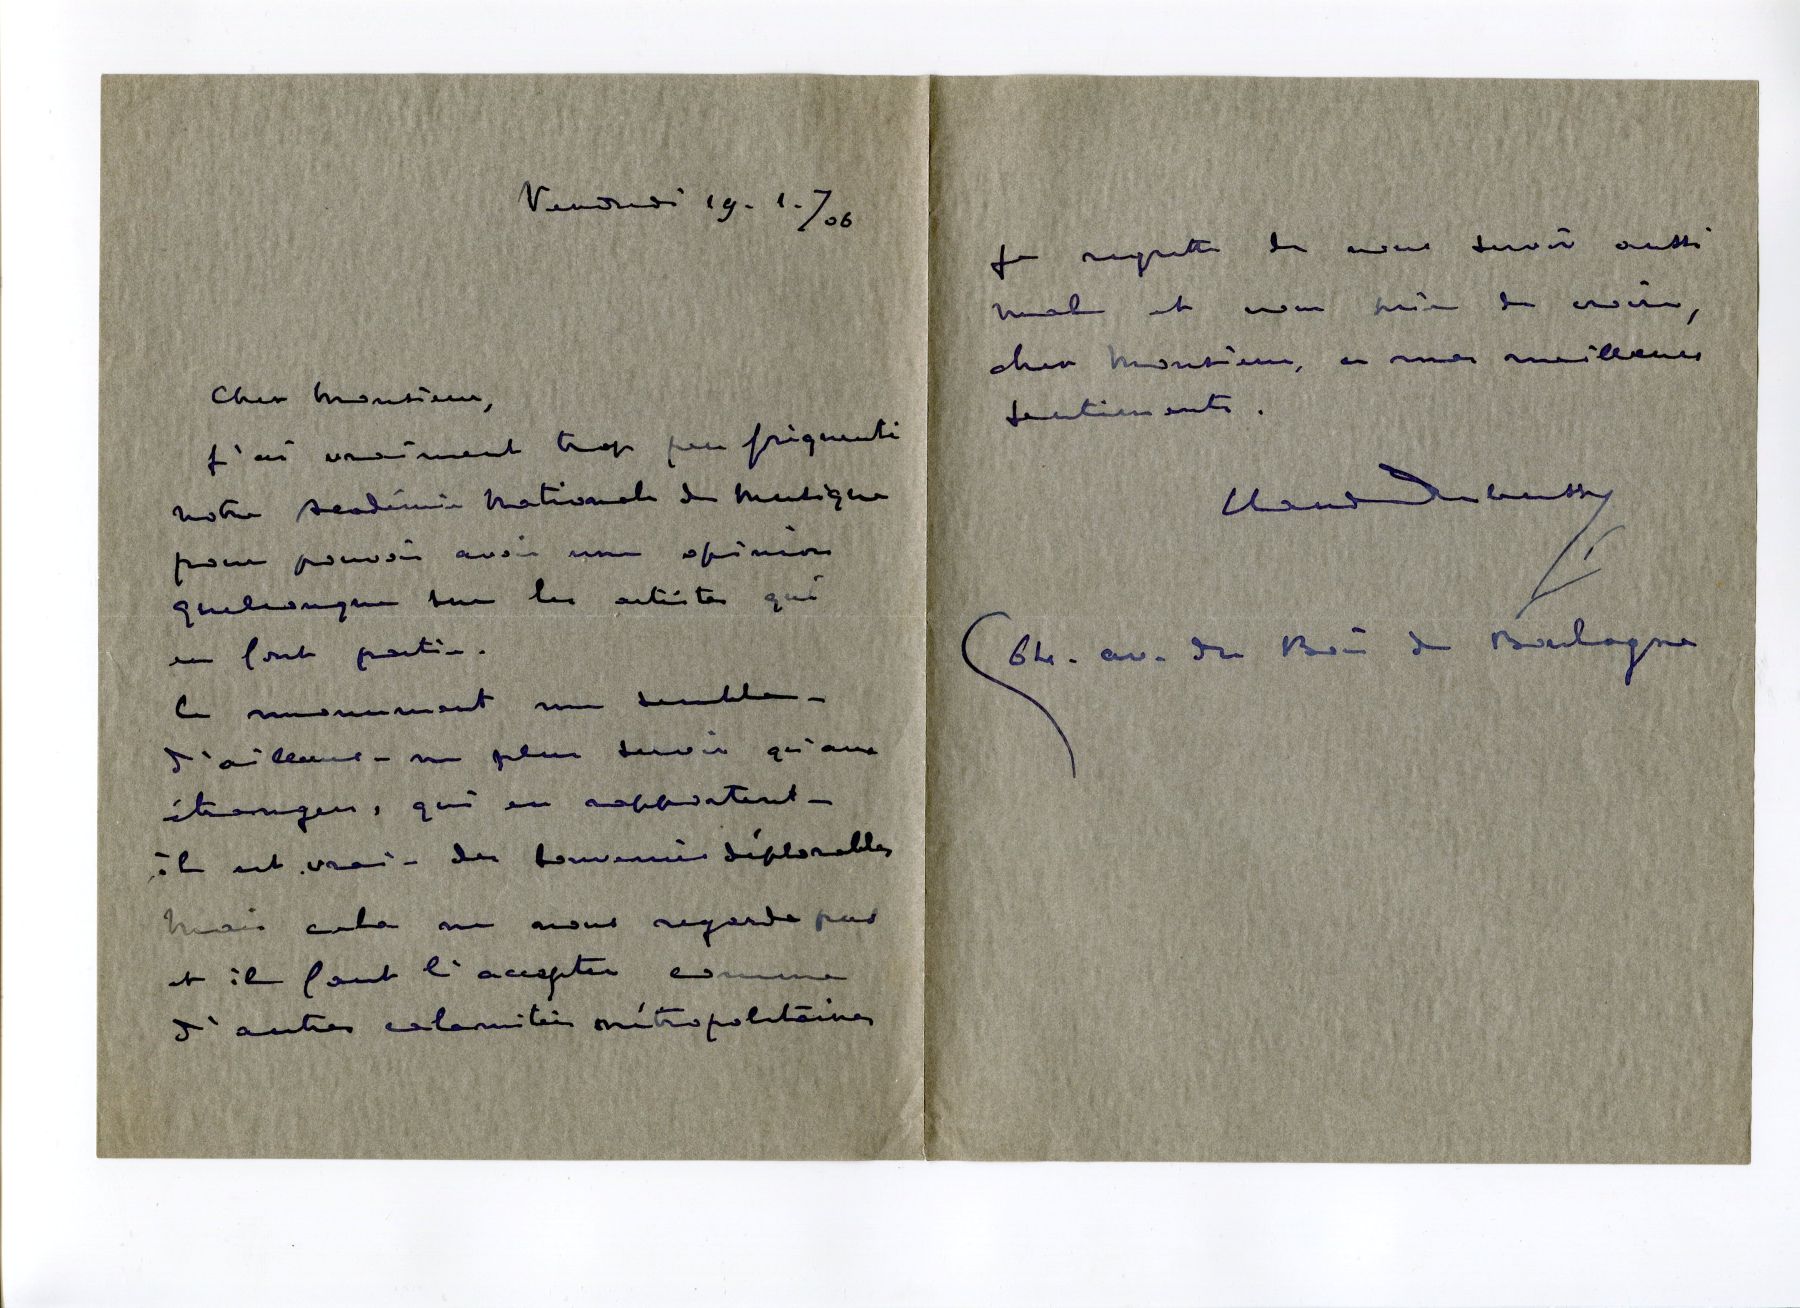 Vendredi 19. 1. /06
Cher Monsieur,
J'ai vraiment trop peu fréquenté
notre Académie Nationale de Musique
pour pouvoir avoir une opinion
quelconque sur les artistes qui
en font partie.
Ce monument me semble –
d'ailleurs – ne plus servir qu'aux
étrangers, qui en rapportent –
il est vrai – des souvenirs déplorables
Mais cela ne nous regarde pas
et il faut l'accepter comme
d'autres calamités métropolitaines
Je regrette de vous servir aussi
mal et vous prie de croire,
cher Monsieur, à mes meilleurs
sentiments.
Claude Debussy
64. av. du Bois de Boulogne